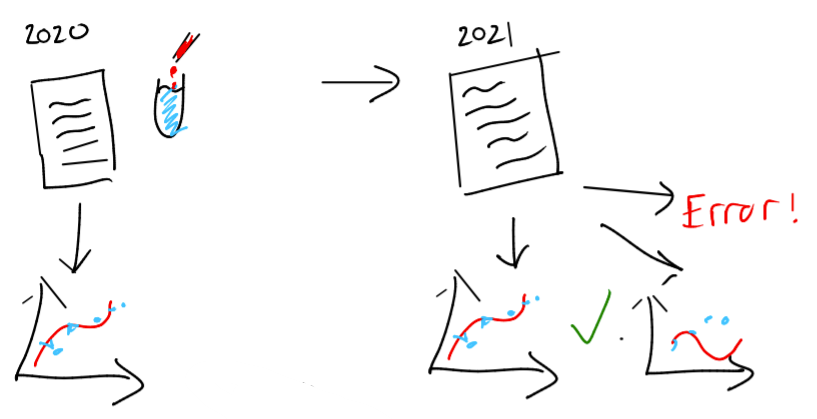 2020
2021
Error!